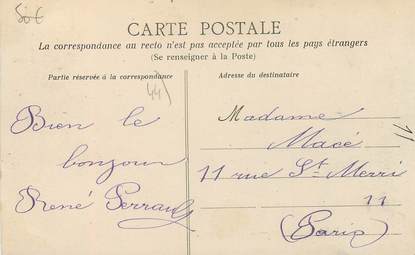 50€
CARTE POSTALE
La correspondance au recto n'est pas acceptée par tous les pays étrangers
(Se renseigner à la Poste)
Partie réservée à la correspondance
Adresse du destinataire
44)
Bien le
bonjour
René Perrault
Madame
Macé
11 rue St Merri
11
(Paris)
11